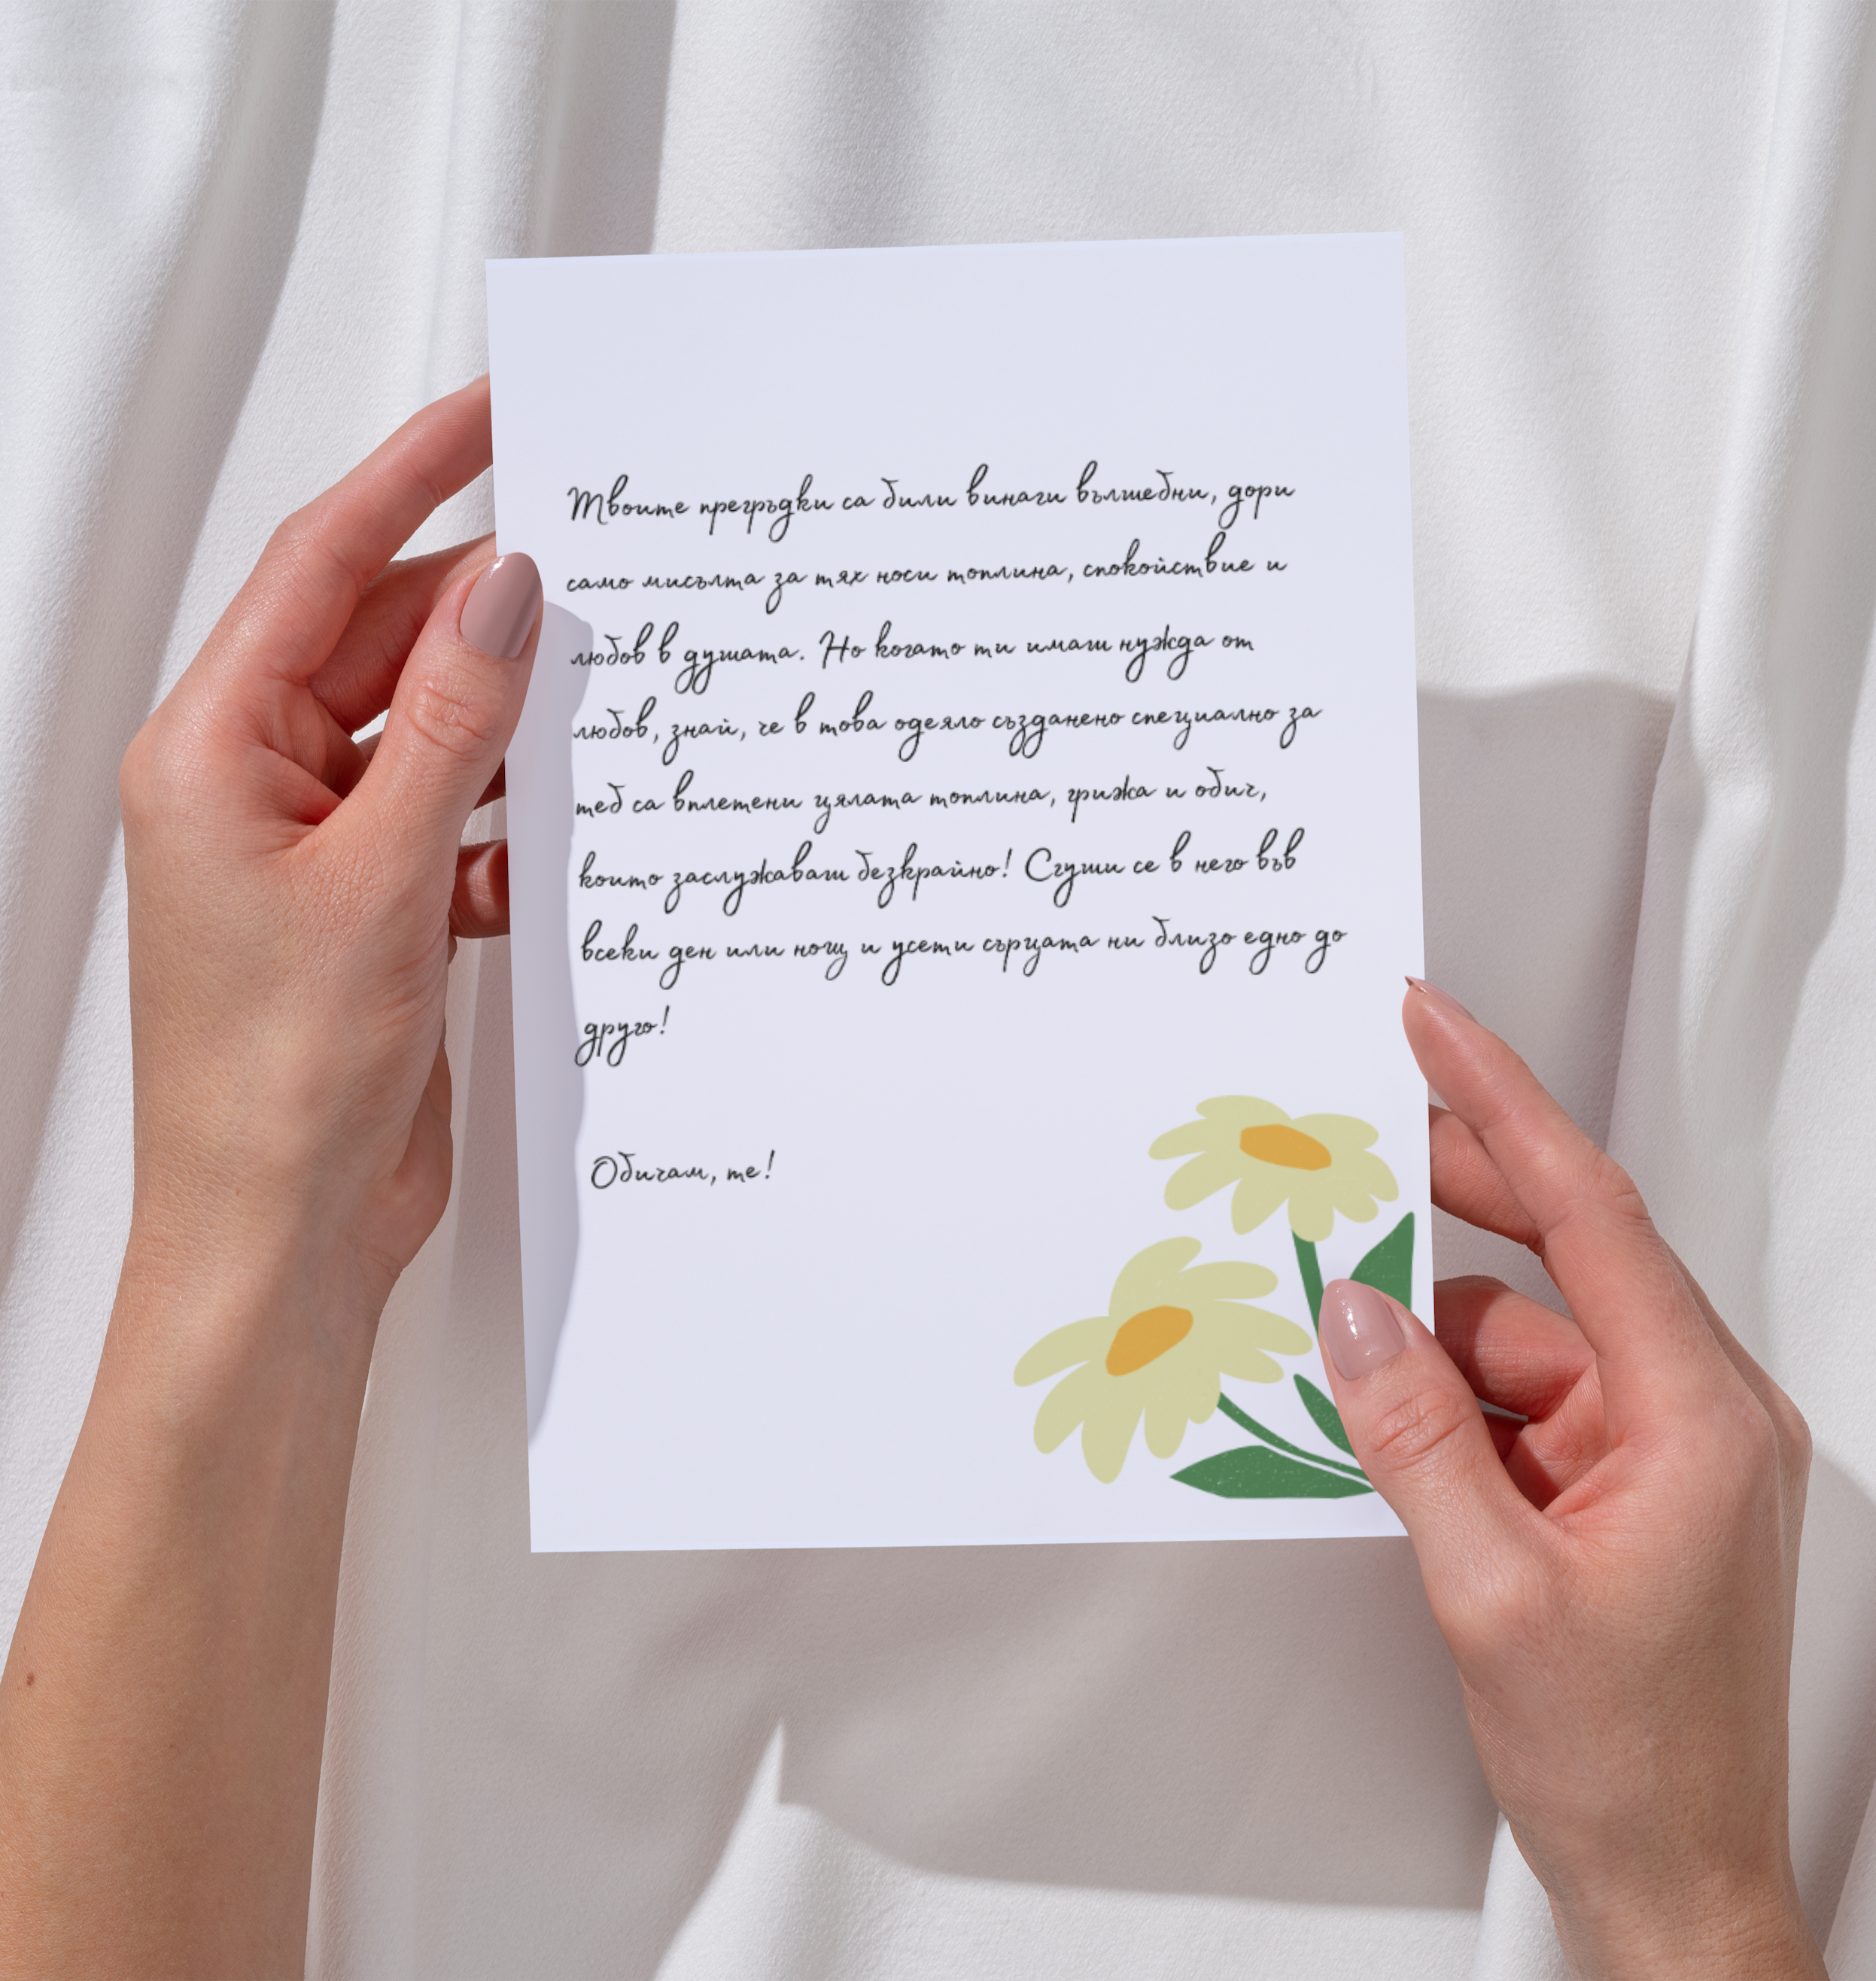 Твоите прегръдки са били винаги вълшебни, дори
само мисълта за тях носи топлина, спокойствие и
любов в душата. Но когато ти имаш нужда от
любов, знай, че в това одеяло създанено специално за
теб са вплетени цялата топлина, грижа и обич,
които заслужаваш безкрайно! Сгуши се в него във
всеки ден или нощ и усети сърцата ни близо едно до
друго!
Обичам, те!